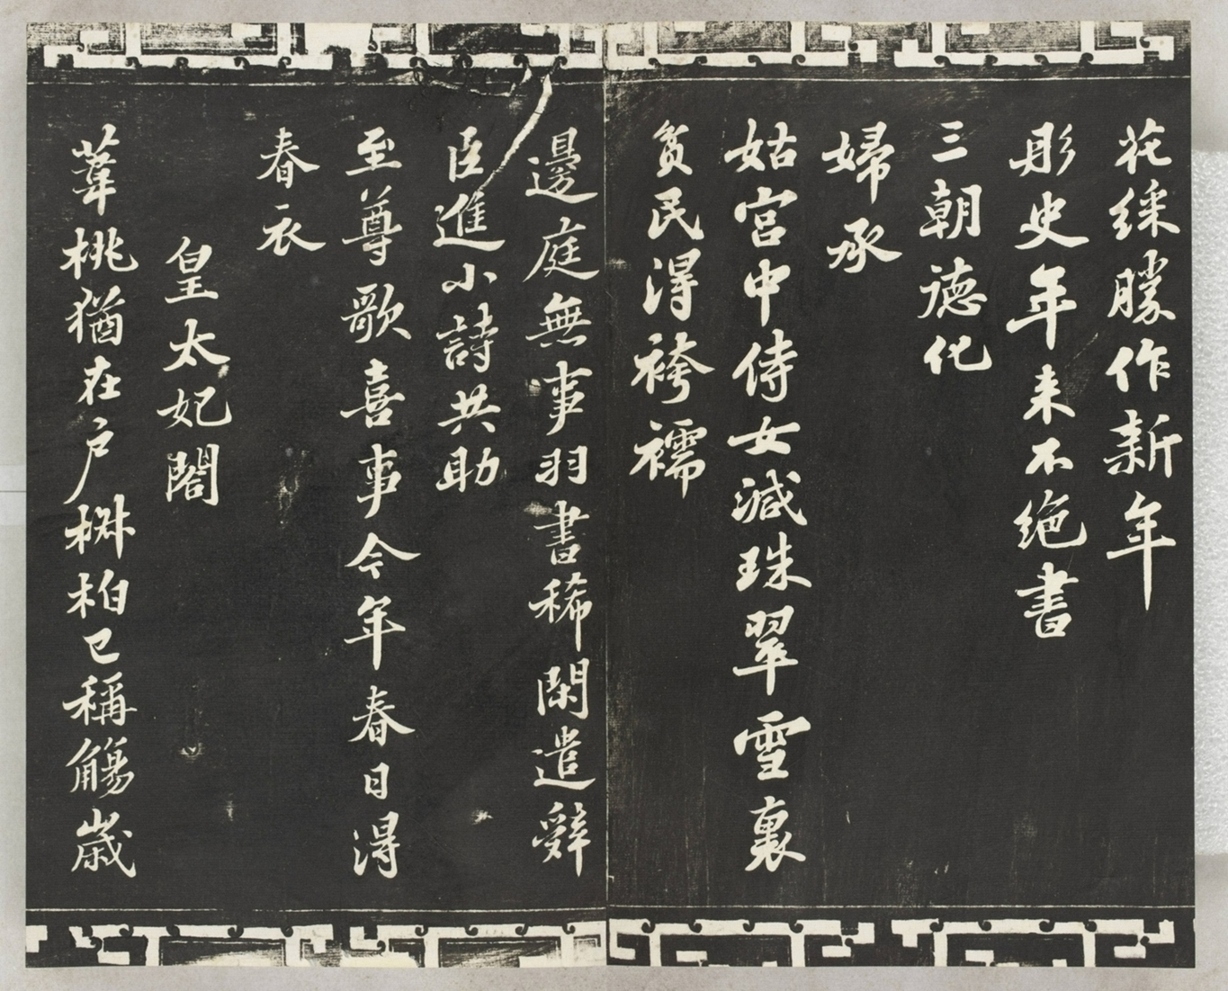 花綵勝作新年
彤史年来不绝書
三朝德化
婦承
姑宮中侍女減珠翠雪裏
貧民得袴襦
邊庭無事羽書稀閑遣辭
臣進小詩共助
至尊歌喜事今年春日得
春衣
皇太妃閤
葦桃猶在户椒柏已稱觴歲